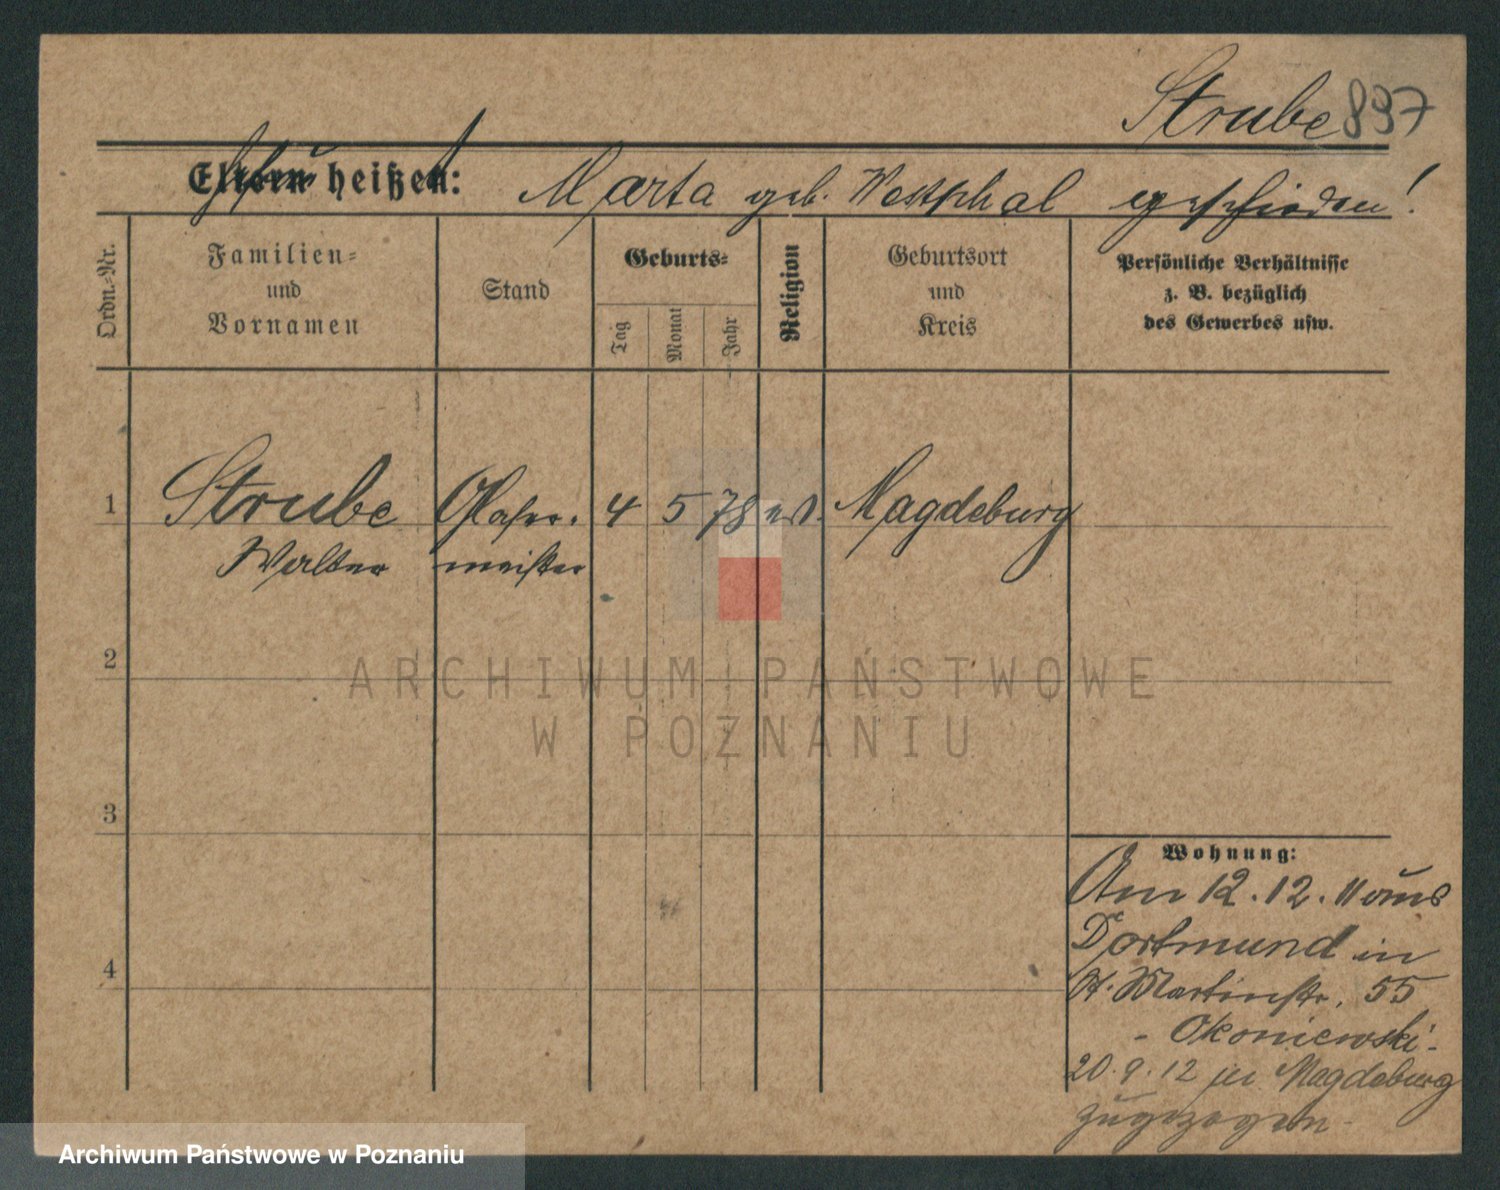 Strube 897
Eltern heißen: Marta geb. Westphal geschieden!
Ordn.-Nr.
Familien-
und
Vornamen
Stand
Geburts-
Tag
Monat
Jahr
Religion
Geburtsort
und
Kreis
Persönliche Verhältnisse
z. B. bezüglich
des Gewerbes usw.
1 Strube Glaser- 4 5 78 ev. Magdeburg
Walter meister
2
ARCHIWUM PAŃSTWOWE
W POZNANIU
3
Wohnung:
Am 12.12.11 aus
Dortmund in
St. Martinstr. 55
- Okoniewski -
4
20.9.12 Magdeburg
zugezogen -
Archiwum Państwowe w Poznaniu